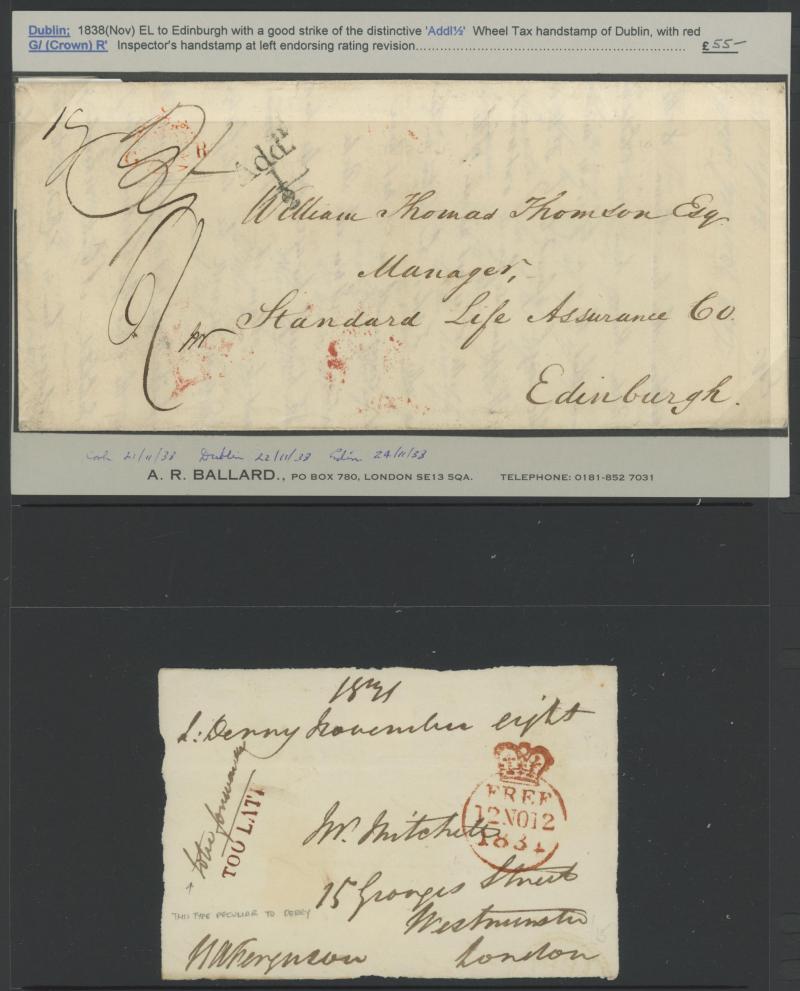 Dublin; 1838(Nov) EL to Edinburgh with a good strike of the distinctive 'Addl½' Wheel Tax handstamp of Dublin, with red
G/ (Crown) R' Inspector's handstamp at left endorsing rating revision........ £55-
G R
Addl ½
William Thomas Thomson Esq
Manager,
Standard Life Assurance Co.
Edinburgh.
Cork 21/11/38 Dublin 22/11/38 Edin 24/11/38
A. R. BALLARD., PO BOX 780, LONDON SE13 5QA. TELEPHONE: 0181-852 7031
1831
L:Derry November eight
to be forwarded
TOO LATE
FREE
12NO12
1831
Mr. Mitchell
15 Georges Street
Westminster
London
THIS TYPE PECULIAR TO DERRY
Ferguson